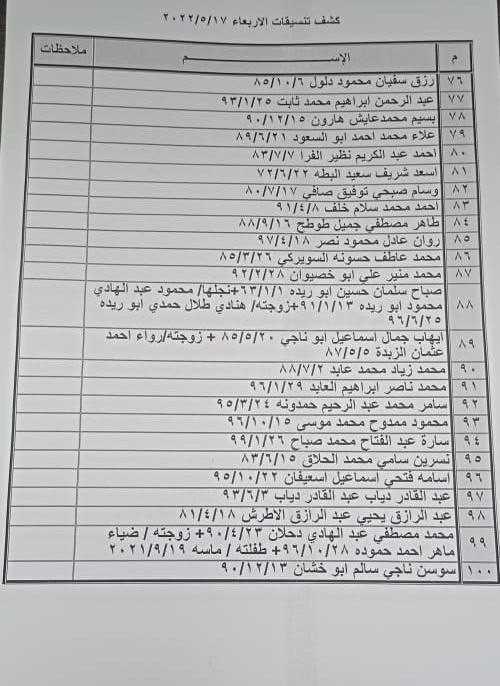 كشف تنسيقات الاربعاء ٢٠٢٢/٥/١٧
م الإســــــــــــــــم ملاحظات
٧٦ رزق سفيان محمود دلول ٨٥/١٠/٦
٧٧ عبد الرحمن ابراهيم محمد ثابت ٩٣/١/٢٥
٧٨ بسيم محمدعايش هارون ٩٠/١٢/١٥
٧٩ علاء محمد احمد ابو السعود ٨٩/٦/٢١
٨٠ احمد عبد الكريم نظير الفرا ٨٣/٧/٧
٨١ اسعد شريف سعيد البطه ٧٢/٦/٢٢
٨٢ وسام صبحي توفيق صافي ٨٠/٧/١٧
٨٣ احمد محمد سلام خلف ٩١/٤/٨
٨٤ طاهر مصطفي جميل طوطح ٨٨/٩/١٦
٨٥ روان عادل محمود نصر ٩٧/٤/١٨
٨٦ محمد عاطف حسونه السويركي ٨٥/٣/٢٦
٨٧ محمد منير علي ابو خصيوان ٩٢/٢/٢٨
٨٨ صباح سلمان حسين ابو ريده ٦٣/١/١+نجلها/ محمود عبد الهادي
محمود ابو ريده ٩١/١/١٣+زوجته/ هنادي طلال حمدي ابو ريده
٩٦/٦/٢٥
٨٩ ايهاب جمال اسماعيل ابو ناجي ٨٥/٥/٢٠ + زوجته/رواء احمد
عثمان الزبدة ٨٧/٥/٥
٩٠ محمد زياد محمد عابد ٨٨/٧/٢
٩١ محمد ناصر ابراهيم العابد ٩٦/١/٢٩
٩٢ سامر محمد عبد الرحيم حمدونه ٩٥/٣/٢٤
٩٣ محمود ممدوح محمد موسى ٩٦/١٠/١٥
٩٤ سارة عبد الفتاح محمد صباح ٩٩/١/٢٦
٩٥ نسرين سامي محمد الحلاق ٨٣/٦/١٥
٩٦ اسامه فتحي اسماعيل اسعيفان ٩٥/١٠/٢٢
٩٧ عبد القادر دياب عبد القادر دياب ٩٣/٦/٣
٩٨ عبد الرازق يحيي عبد الرازق الاطرش ٨١/٤/١٨
٩٩ محمد مصطفي عبد الهادي دحلان ٩٠/٤/٢٣+ زوجته / ضياء
ماهر احمد حموده ٩٦/١٠/٢٨+ طفلته / ماسه ٢٠٢١/٩/١٩
١٠٠ سوسن ناجي سالم ابو خشان ٩٠/١٢/١٣